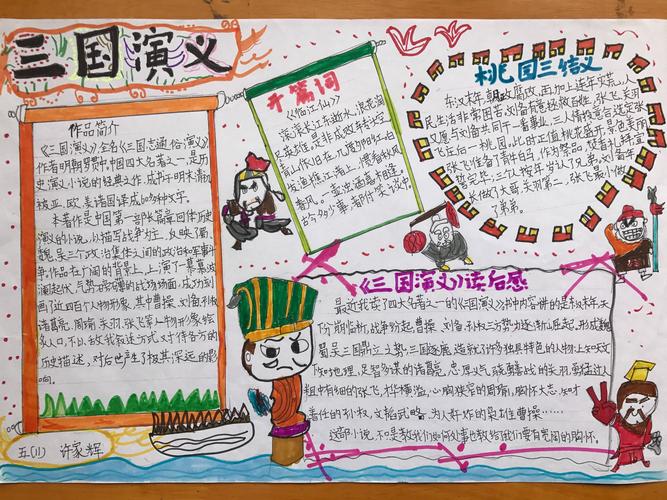 三国演义
作品简介
《三国演义》,全名《三国志通俗演义》
作者明朝罗贯中。中国四大名著之一,是历
史演义小说的经典之作,成于明末清初
被亚、欧、美诸国译成60多种文字。
本著作是中国第一部长篇章回体历史
演义的小说,以描写战争为主,反映了蜀
魏、吴三个政治集团之间的政治和军事斗
争。作品在广阔的背景上,上演了一幕幕波
澜起伏、气势磅礴的战场场面,成功刻
画了近四百个人物形象,其中曹操、刘备、孙权
诸葛亮、周瑜、关羽、张飞等人物形象脍
炙人口,不以敌我叙述方式,对待各方的
历史描述,对后世产生了极其深远的影
响。
五(1) 许家辉
开篇词
《临江仙》
滚滚长江东逝水,浪花淘
尽英雄。是非成败转头空。
青山依旧在,几度夕阳红。白
发渔樵江渚上,惯看秋月
春风。一壶浊酒喜相逢。
古今多少事,都付笑谈中。
桃园三结义
东汉末年,朝政腐败,再加上连年灾荒,人
民生活非常困苦。刘备有意拯救百姓,张飞、关羽
又愿与刘备共同干一番事业。三人情投意合,选定张
飞庄后一桃园。此时正值桃花盛开,景色美丽
张飞准备了青牛白马,作为祭品,焚香礼拜,宣
誓完毕,三个人按年岁认了兄弟。刘备年
长做了大哥,关羽第二,张飞最小做
了弟弟。
《三国演义》读后感
最近我读了四大名著之一的《三国演义》,书中内容讲的是东汉末年天
下分崩临析,战争纷起,曹操、刘备、孙权三方势力逐渐山屈起,形成魏
蜀吴三国鼎立之势。三国逐鹿,造就了许多独具特色的人物:上知天文
下知地理,足智多谋的诸葛亮,忠肝义气,骁勇善战的关羽,
粗中有细的张飞,才华横溢,心胸狭窄的周瑜,胸怀大志,知才
善任的孙权,文韬武略,为人奸诈的枭雄曹操……
这部小说,不只是教我们如何处事也教给我们要有宽阔的胸怀。